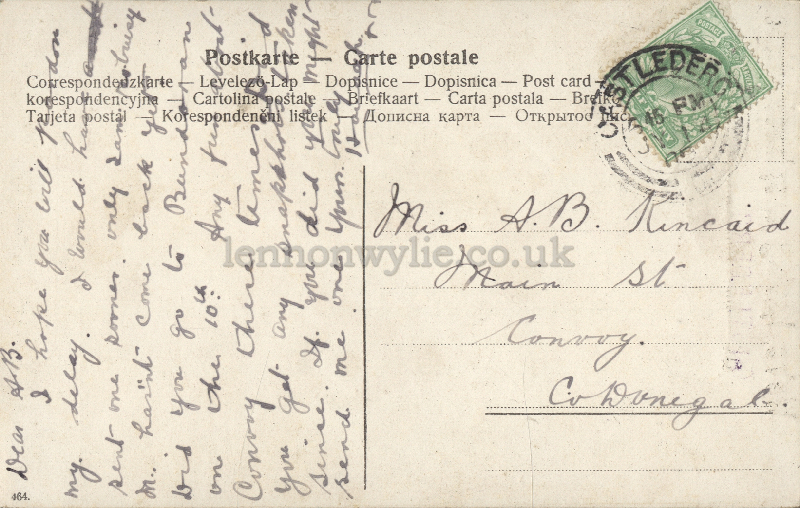 Postkarte — Carte postale
Correspondenzkarte — Levelező-Lap — Dopisnice — Dopisnica — Post card —
korespondencyjna — Cartolina postale — Briefkaart — Carta postala —
Tarjeta postal — Korespondenční lístek — Дописна карта — Открытое
Dear A.B.
I hope you will pardon
my delay. I would have
sent one sooner. only Sam
M. hasn't come back yet.
Did you go to Bundoran
on the 10th. Any fun
Convoy these times. Did
you get any snapshots taken
since. If you did you might
send me one. Yours truly
CASTLEDERG
Miss A.B. Kincaid
Main St
Convoy.
Co Donegal.
lennonwylie.co.uk
464.